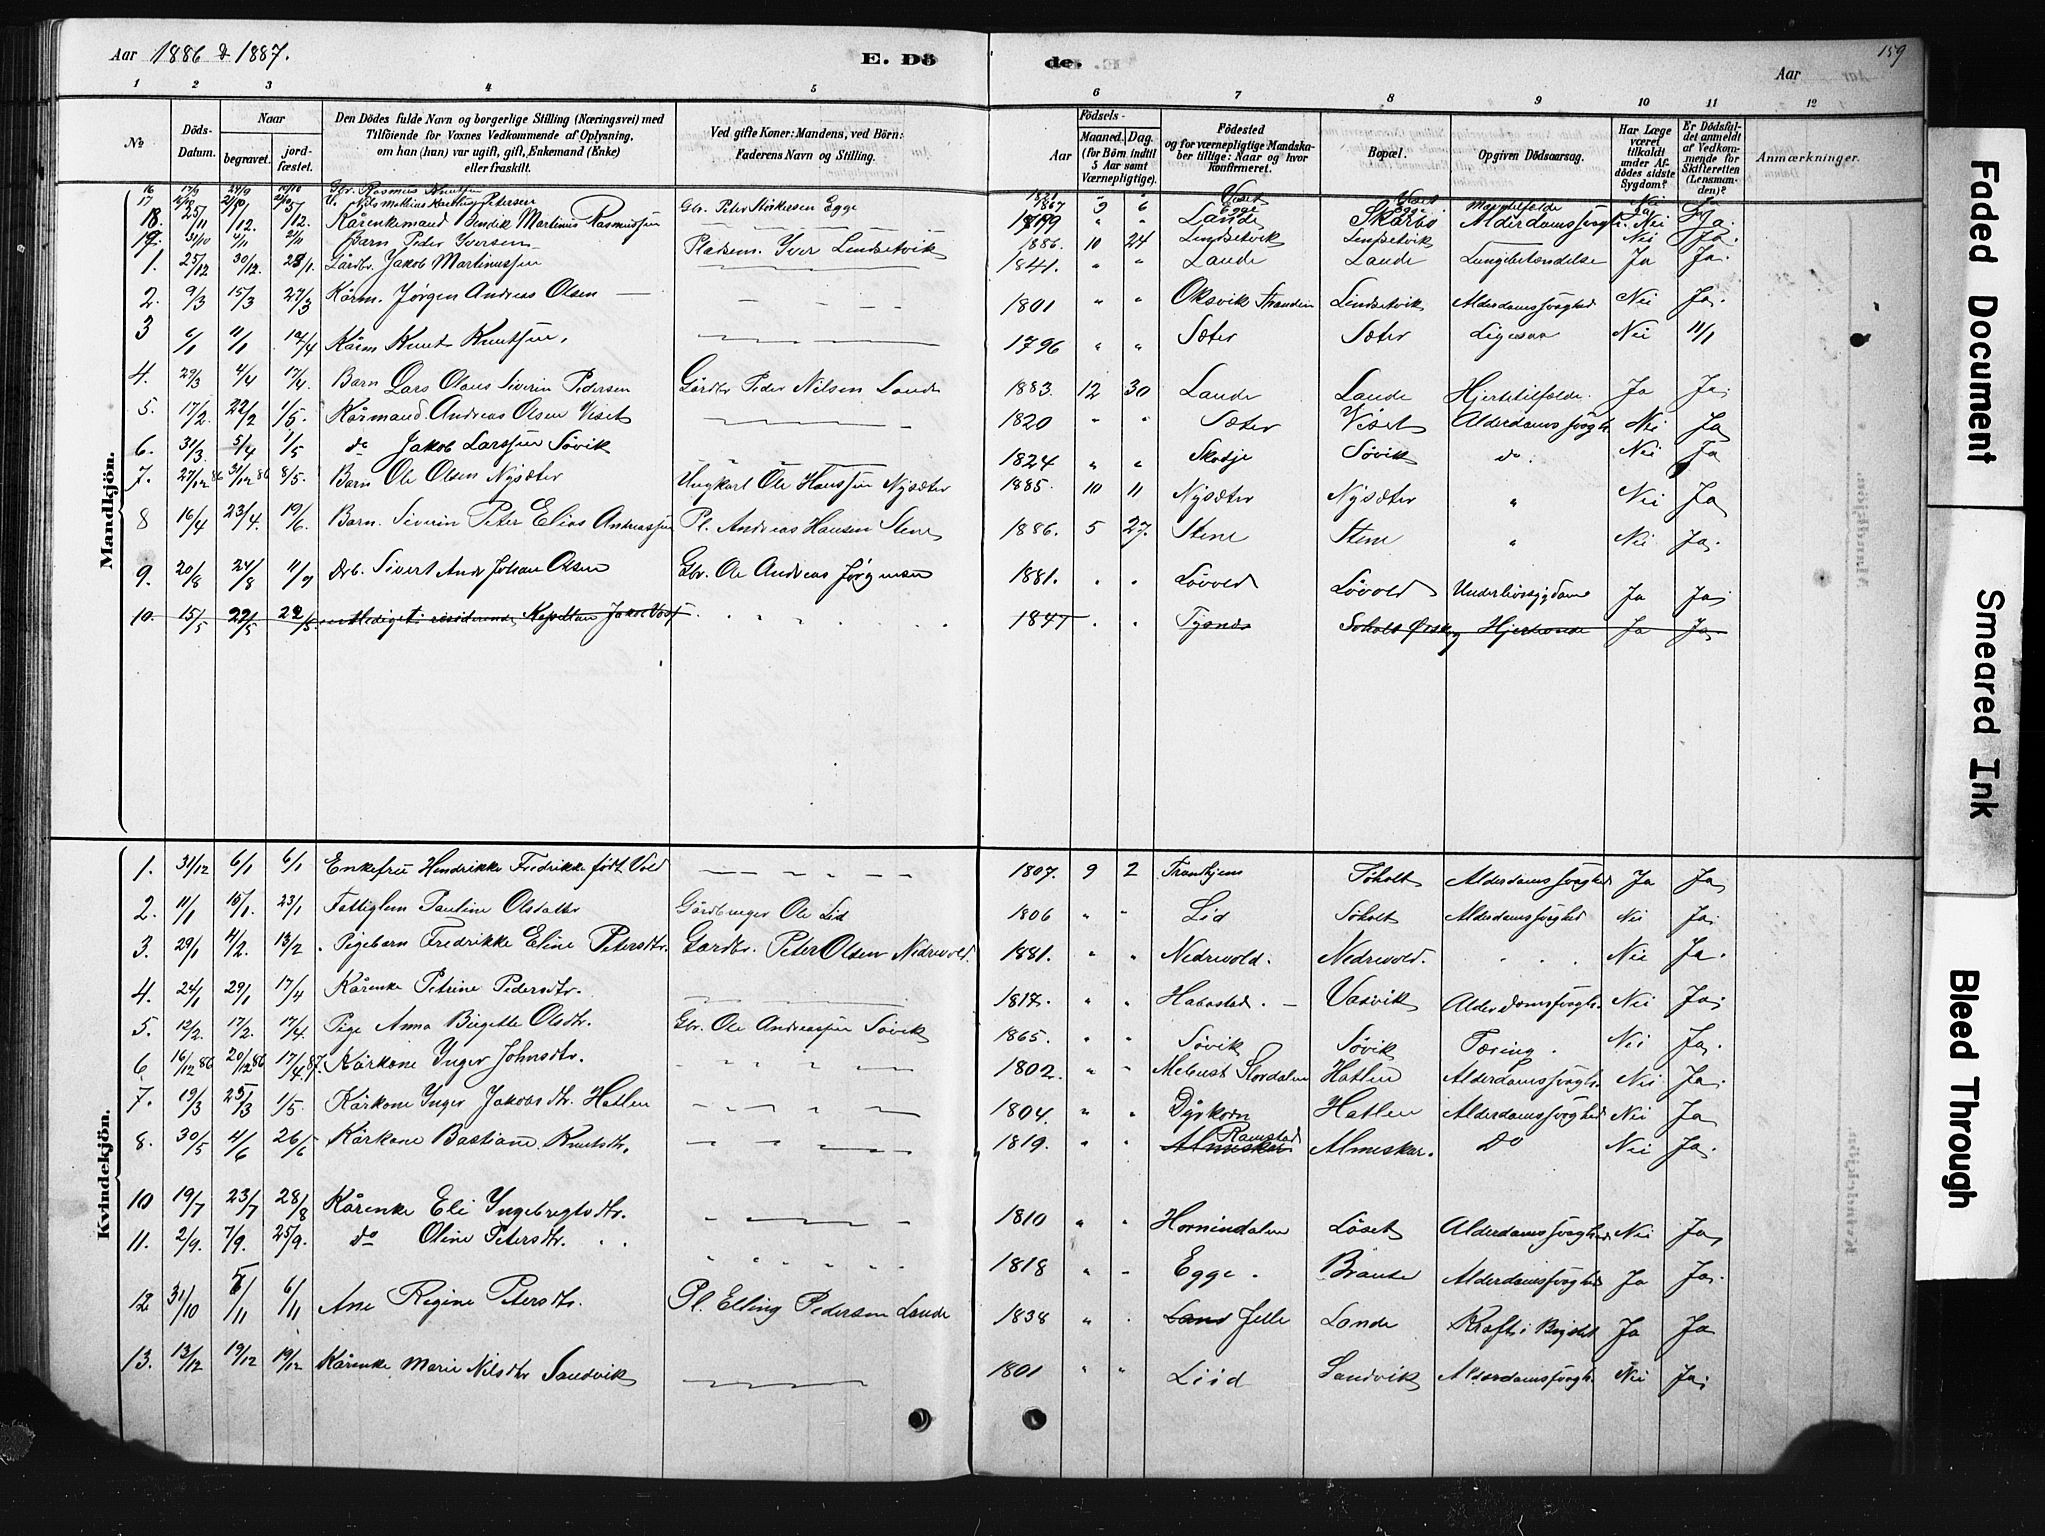 Aar 1886 & 1887. E. Dö de. Aar 159
1 2 3 4 5 6 7 8 9 10 11 12
No Döds-Datum. Naar begravet. jord-fæstet. Den Dödes fulde Navn og borgerlige Stilling (Næringsvei) med Tilföiende for Voxnes Vedkommende af Oplysning, om han (hun) var ugift, gift, Enkemand (Enke) eller fraskilt. Ved gifte Koner: Mandens, ved Börn: Faderens Navn og Stilling. Födsels- Aar Maaned. Dag. (for Börn indtil 5 Aar samt Værnepligtige). Födested og for værnepligtige Mandskaber tillige: Naar og hvor konfirmeret. Bopæl. Opgiven Dödsaarsag. Har Læge været tilkaldt under Afdödes sidste Sygdom? Er Dödsfaldet anmeldt af Vedkommende for Skifteretten (Lensmanden)? Anmærkninger.
Mandkjön.
16 17/9 24/9 10/10 Gbr. Rasmus Knutsen
17 Petersen Gbr. Peter Störkersen Egge 1867 3 6 Egge
18. 25/11 1/12. 5/12. Kårenkemand Bendik Martinus Rasmussen 1819 " " Lande Skarbö Alderdomssvagh. Nei Ja.
19. 31/10 4/11 21/11 Barn Peder Iversen Pladsem. Iver Lindsetvik 1886. 10 24 Lindsetvik Lindsetvik Nei Ja.
1. 25/12 30/12. 23/1. Gårdbr. Jakob Martinussen 1841. " " Lande Lande Lungebetændelse Ja Ja.
2. 9/3 15/3 27/3 Kårm. Jörgen Andreas Olsen 1801 " " Oksvik Stranden Lindsetvik Alderdomssvaghed Nei Ja.
3 6/1 11/1 12/4 Kårm Knut Knutsen. 1796 " " Sæter Sæter Ligesaa Nei 11/1
4. 29/3 4/4 17/4. Barn Lars Olaus Siverin Pedersen Gårdbr Peder Nilsen Lande 1883. 12 30 Lande Lande Hjertetilfælde. Ja Ja.
5. 17/2. 22/2 1/5. Kårmand. Andreas Olsen Viset 1820 " " Sæter Viset Alderdomssvagh. Nei Ja
6. 31/3. 5/4 1/5 do Jakob Larssen Sövik 1824 " " Skodje Sövik do. Nei Ja
7. 27/12 86 31/12 86 8/5. Barn Ole Olsen Nysæter Ungkarl Ole Hanssen Nysæter 1885. 10 11 Nysæter Nysæter " Nei Ja
8 16/4 23/4. 19/6. Barn. Siverin Peter Elias Andreassen Pl. Andreas Hansen Stene 1886. 5 27. Stene Stene " Nei Ja.
9. 20/8 24/8 11/9 Drb. Sivert Andr Johan Olsen Gbr. Ole Andreas Jörgensen 1881. " " Lövold Lövold Underlivssygdom Ja Ja.
10. 15/5 22/5 22/5. residerende Kapellan Jakob 1847 " " Tysnes Söholt Örskog Ja Ja.
Kvindekjön.
1. 31/12 6/1 6/1 Enkefru Hendrikke Fredrikke födt Vold 1807. 9 2 Trondhjem Söholt Alderdomssvaghed Ja Ja
2. 11/1 15/1. 23/1 Fattiglem Pauline Olsdatter Gårdbruger Ole Lid 1806 " " Lid Söholt Alderdomssvaghed Nei Ja.
3. 29/1 4/2. 13/2 Pigebarn Fredrikke Eline Petersdtr. Gardbr. Peter Olsen Nedrevold. 1881. " " Nedrevold. Nedrevold. " " " Nei Ja.
4. 24/1 29/1 17/4 Kårenke Petrine Pedersdtr. 1817. " " Vasvik Alderdomssvagh. Nei Ja.
5. 12/2. 17/2. 17/4. Pige Anna Birgitte Olsdtr. Gbr. Ole Andreassen Sövik 1865. " " Sövik Sövik Tæring. Nei Ja.
6 16/12 86 20/12 86 17/4 87. Kårkone Inger Johnsdtr. 1802. " " Stordalen Hatlen Alderdomssvagh. Nei Ja.
7. 19/3 25/3 1/5. Kårkone Inger Jakobsdtr. Hatlen 1804. " " Dyrkorn Hatlen Alderdomssvaghed Nei Ja
8. 30/5 4/6 26/6 Kårkone Bastiane Knutsdtr. 1819. " " Almeskar Ramstad Almeskar. Do Nei Ja.
10 19/7 23/7 28/8 Kårenke Eli Ingebregtsdtr. 1810 " " Hornindalen Löset Alderdomssvaghed Nei Ja
11. 2/9. 7/9. 25/9. do Oline Petersdtr. 1818 " " Egge. Alderdomssvaghed Ja Ja.
12 31/10 6/11 6/11 Ane Regine Petersdtr. Pl. Elling Pedersen Lande 1838 " " Land Jelle Lande Kræft i Brystet Ja Ja
13. 13/12 19/12 19/12 Kårenke Marie Nilsdtr Sandvik 1801 " " Liid Sandvik Alderdomssvagh. Nei Ja.
Faded Document
Smeared Ink
Bleed Through